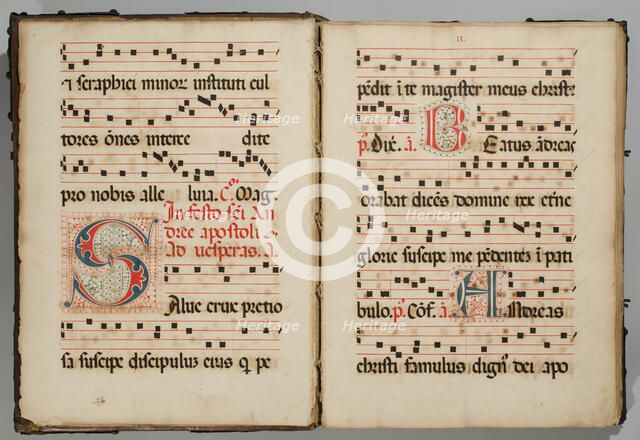 ⁊ seraphici minor instituti cul
tores oēs interce dite
pro nobis alle luia. Co. Mag.
In festo sci An
dree apostoli
ad vesperas. a.
Salue crux pretio
sa suscipe discipulum eius q pe
II.
pēdit ī te magister meus christ⁹
ps. Dix. a. Beatus andreas
orabat dicēs domine rex etne
glorie suscipe me pēdentez ī pati
bulo. ps. Cōf. a. Andreas
christi famulus dign⁹ dei apo
Heritage
Heritage
Heritage
Heritage
Heritage
Heritage
C